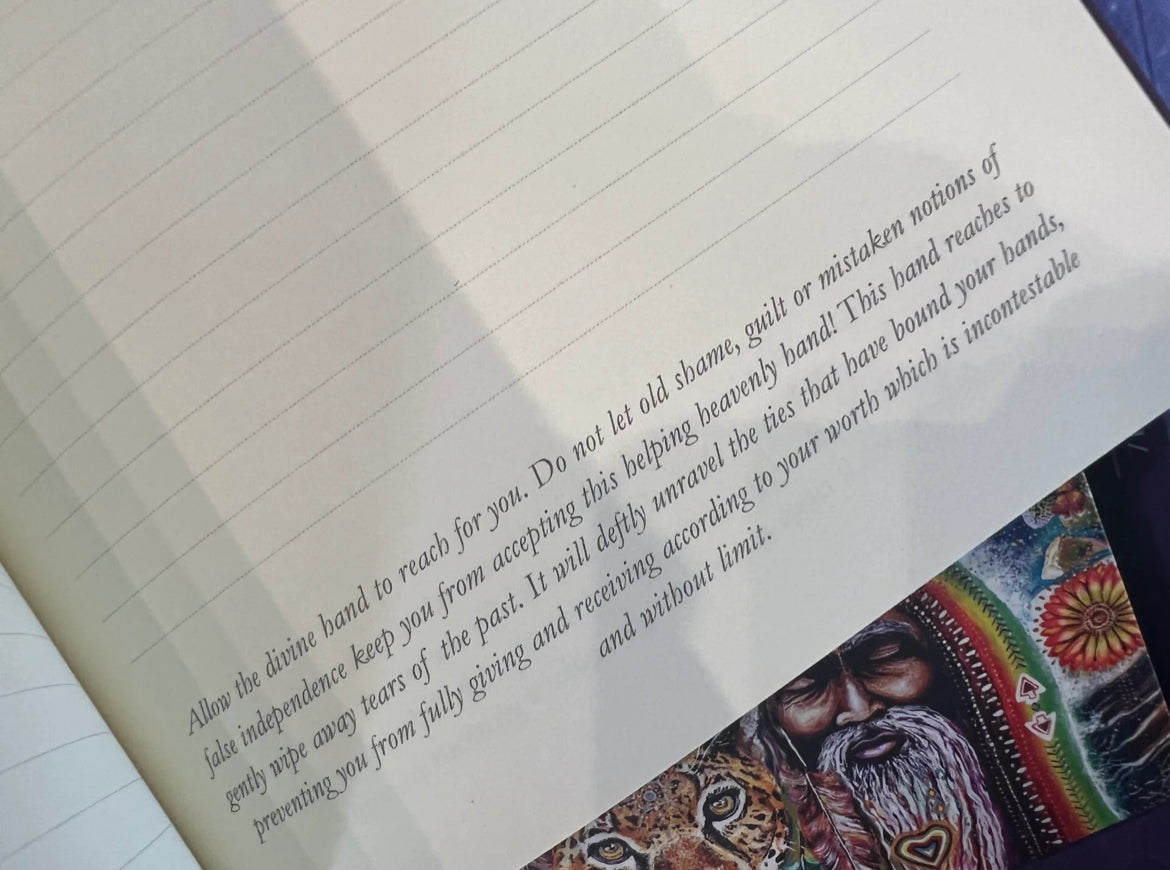 Allow the divine hand to reach for you. Do not let old shame, guilt or mistaken notions of
false independence keep you from accepting this helping heavenly hand! This hand reaches to
gently wipe away tears of the past. It will deftly unravel the ties that have bound your hands,
preventing you from fully giving and receiving according to your worth which is incontestable
and without limit.